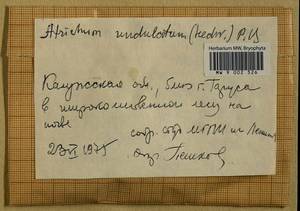 Atrichum undulatum (Hedw.) P.B.
Herbarium MW, Bryophyta
MW 9 003 526
Калужская обл., близ г. Таруса
в широколиственном лесу на
почве
собр. МГПИ им Ленина
23 VI 1975
опр.